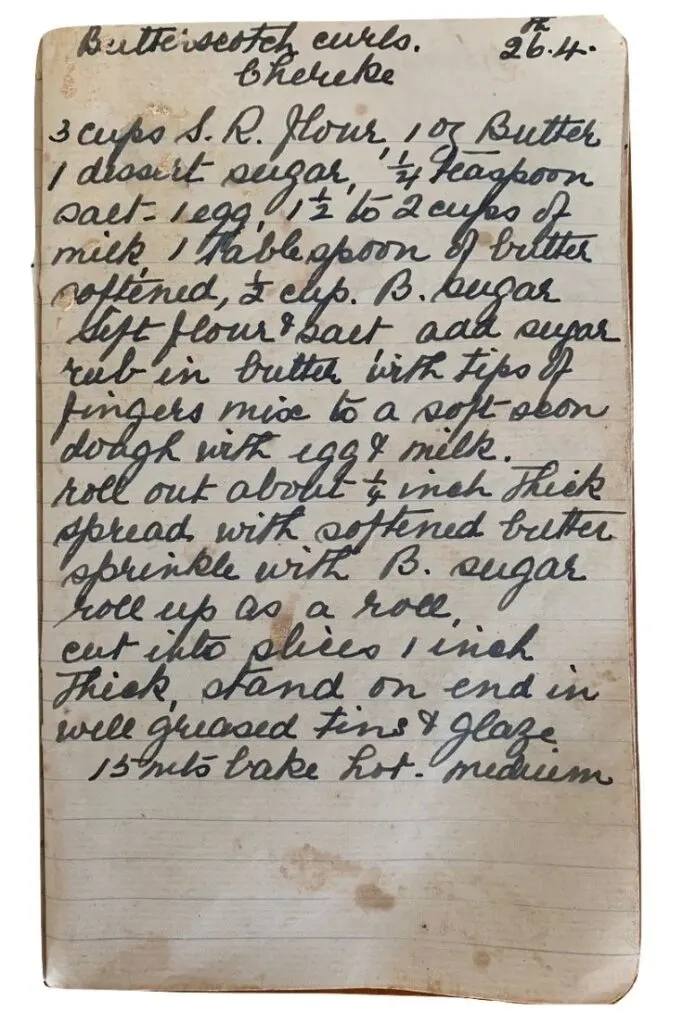 Butterscotch curls. 26th.4.
Chereke
3 cups S. R. flour, 1 oz Butter
1 dessert sugar, 1/4 teaspoon
salt - 1 egg, 1 1/2 to 2 cups of
milk, 1 Tablespoon of butter
softened, 1/2 cup. B. sugar
Sift flour & salt add sugar
rub in butter with tips of
fingers mix to a soft scon
dough with egg & milk.
roll out about 1/4 inch thick
spread with softened butter
sprinkle with B. sugar
roll up as a roll,
cut into slices 1 inch
thick, stand on end in
well greased tins & glaze
15 mts bake hot - medium